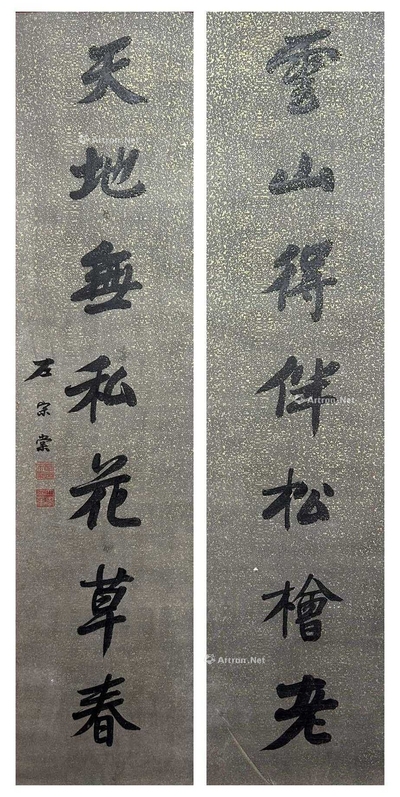 雲山得伴松檜老
天地無私花草春
左宗棠
Artron.Net
Artron.Net
Artron.Net